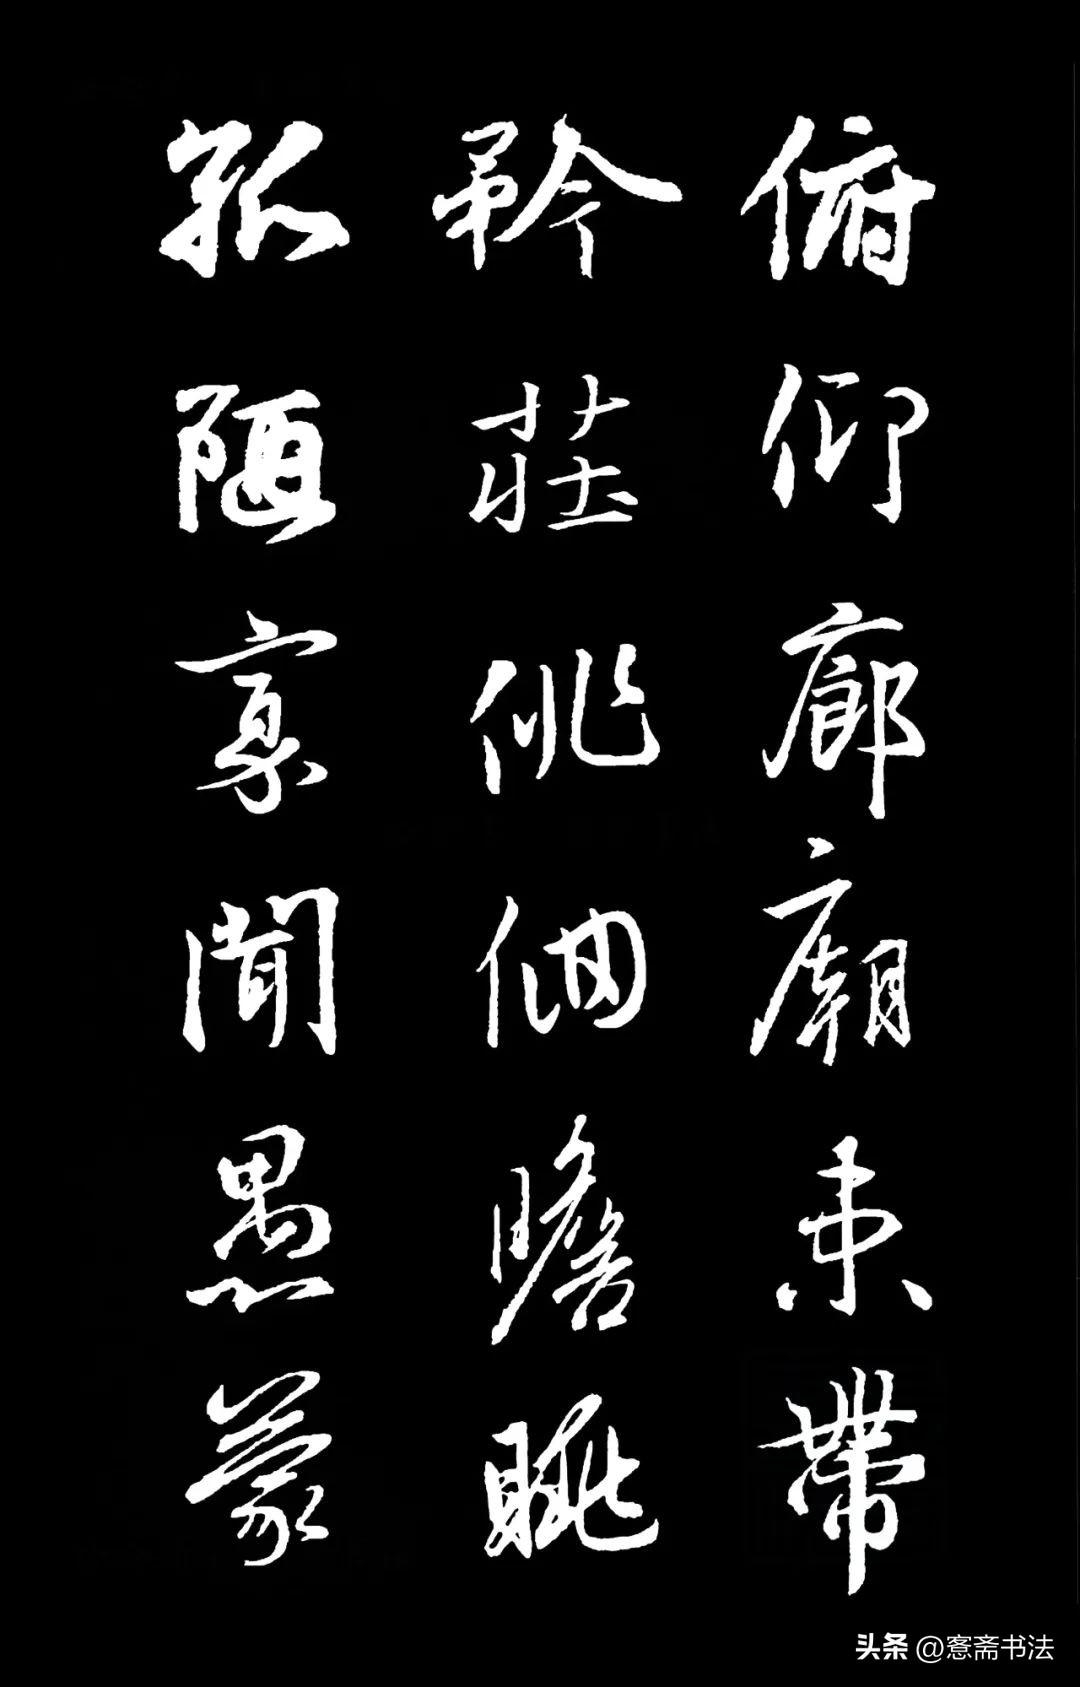 俯仰廊廟束帶
矜莊佻個瞻眺
孤陋寡聞愚蒙
头条 @窓斋书法